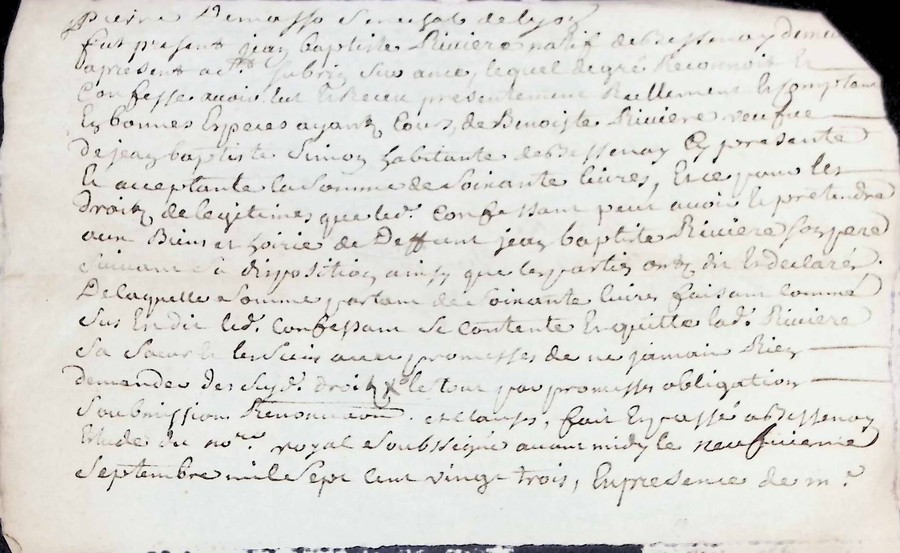 Pierre Senechal de Lyon
fut present jean baptiste Riviere natif de Bessenay demeu
apresent a St subrin sur ance, lequel de gré Reconnoit et
Confesse avoir eut et Receu presentement Reellement et Comptam
En bonnes Especes ayantz Cours, de Benoiste Riviere veufue
de jean baptiste Simon habitante de Bessenay Cy presente
Et acceptante la Somme de Soixante livres, Et ce pour les
droitz de legitimes que led. Confessant peut avoir et pretendre
aux Biens et hoirie de Deffunt jean baptiste Riviere son pere
Suivant Sa disposition ainsy que les partiz ontz dit Et declaré.
De laquelle Somme partant de Soixante livres faisant comme
Sus Est dit led. Confessant Se Contente En quitte lad. Riviere
Sa Soeur & les Siens avec promesses de ne jamais Rien
demander des Susd. droitz le tout par promesses obligation
Soubmission Renonciation et clauses, fait Et passé a Bessenay
Etude du nore. royal Soubsigné avant midy le neufvieme
Septembre mil Sept Cent vingt trois, En presence de mr.